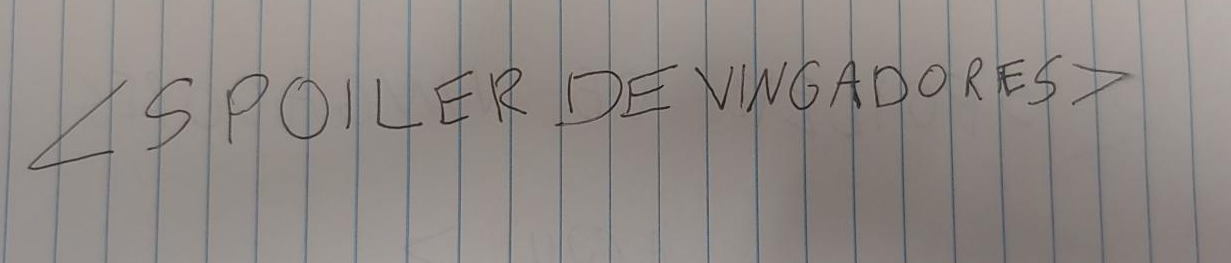 <SPOILER DE VINGADORES>